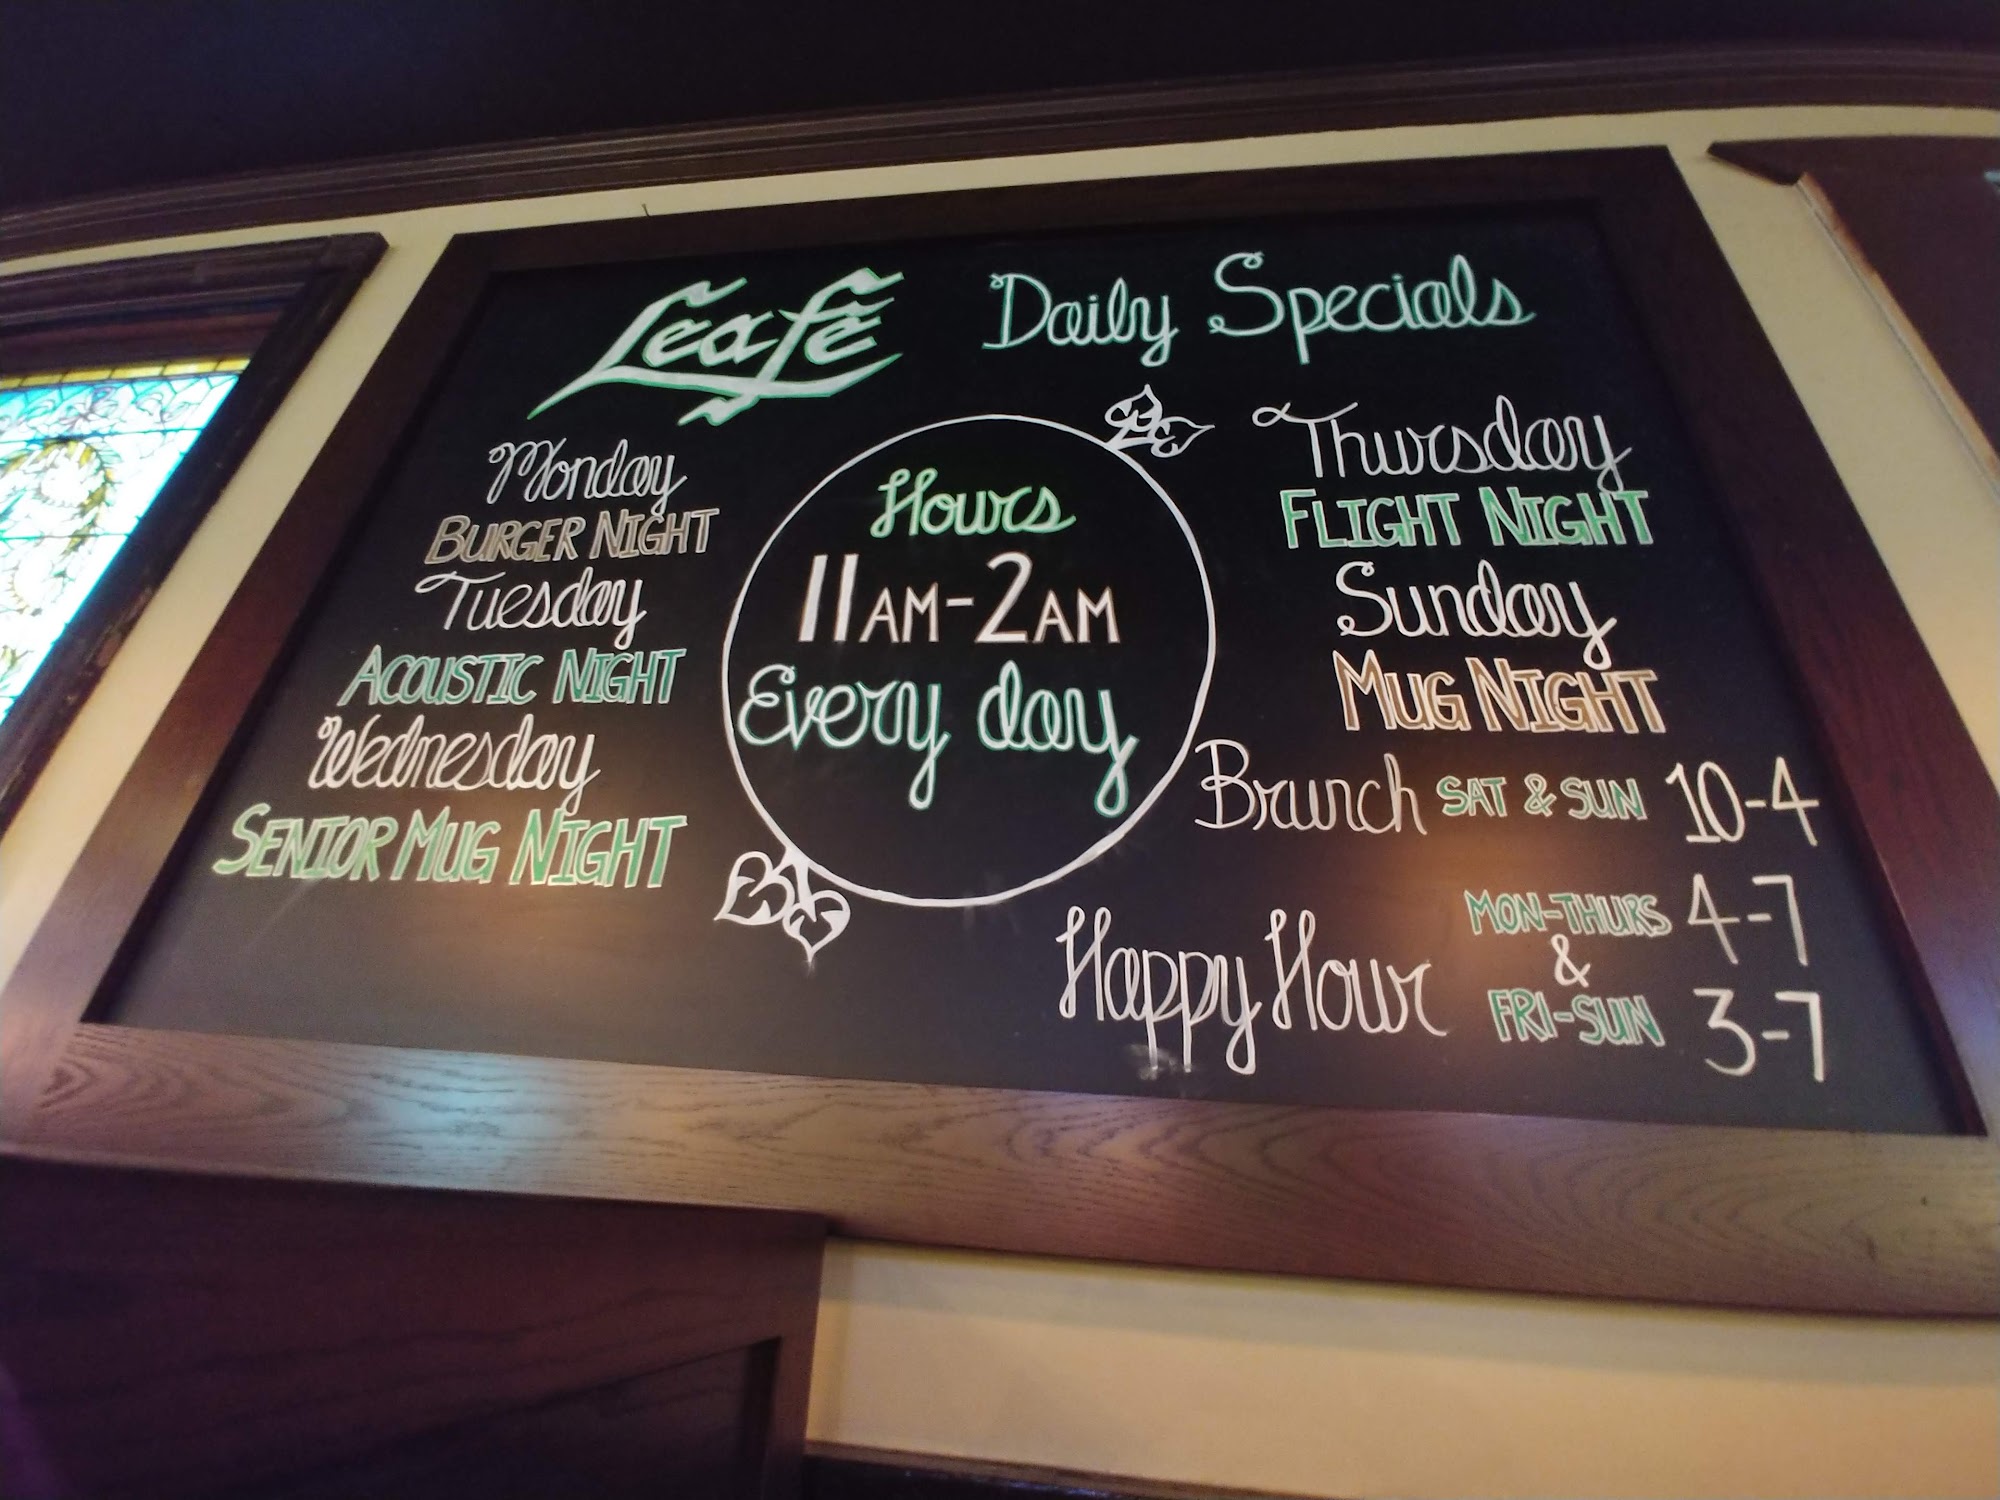 Leafē Daily Specials
Monday
BURGER NIGHT
Tuesday
ACOUSTIC NIGHT
Wednesday
SENIOR MUG NIGHT
Hours
11AM-2AM
Every day
Thursday
FLIGHT NIGHT
Sunday
MUG NIGHT
Brunch SAT & SUN 10-4
Happy Hour MON-THURS 4-7
&
FRI-SUN 3-7